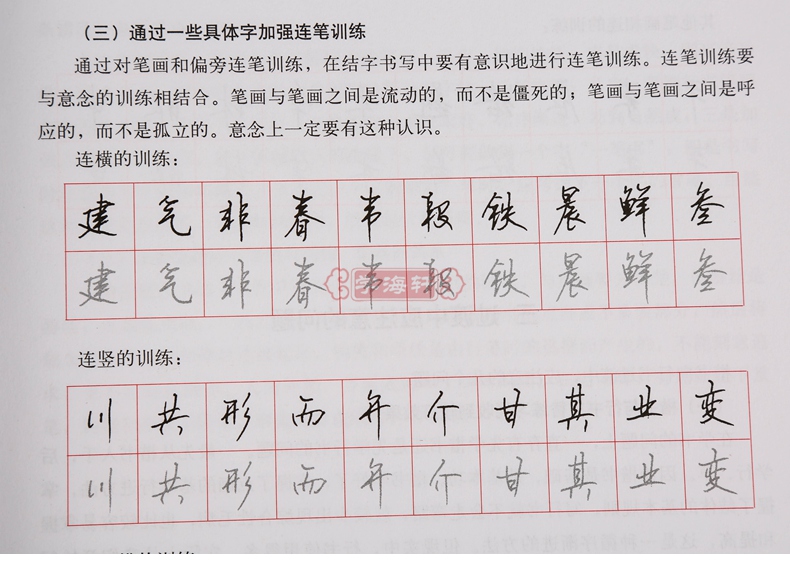 （三）通过一些具体字加强连笔训练
通过对笔画和偏旁连笔训练，在结字书写中要有意识地进行连笔训练。连笔训练要
与意念的训练相结合。笔画与笔画之间是流动的，而不是僵死的；笔画与笔画是呼
应的，而不是孤立的。意念上一定要有这种认识。
连横的训练：
建 气 非 春 韦 段 铁 晨 鲜 叁
建 气 非 春 韦 段 铁 晨 鲜 叁
学海轩
连竖的训练：
川 共 形 而 并 介 甘 其 业 变
川 共 形 而 并 介 甘 其 业 变